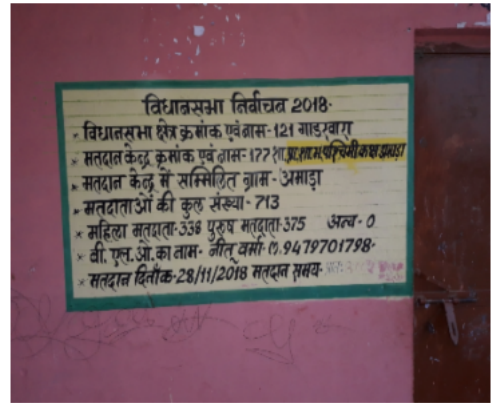 विधानसभा निर्वाचन 2018-
* विधानसभा क्षेत्र क्रमांक एवं नाम-121 गाडरवारा
* मतदान केन्द्र क्रमांक एवं नाम-177 शा.प्रा.शा.भ.पश्चिमी कक्ष अमाड़ा
* मतदान केन्द्र में सम्मिलित ग्राम-अमाड़ा
* मतदाताओं की कुल संख्या-713
* महिला मतदाता-338 पुरुष मतदाता-375 अन्य-0
* वी. एल.ओ.का नाम- नीतू वर्मा मो.9479701798-
* मतदान दिनाँक-28/11/2018 मतदान समय-